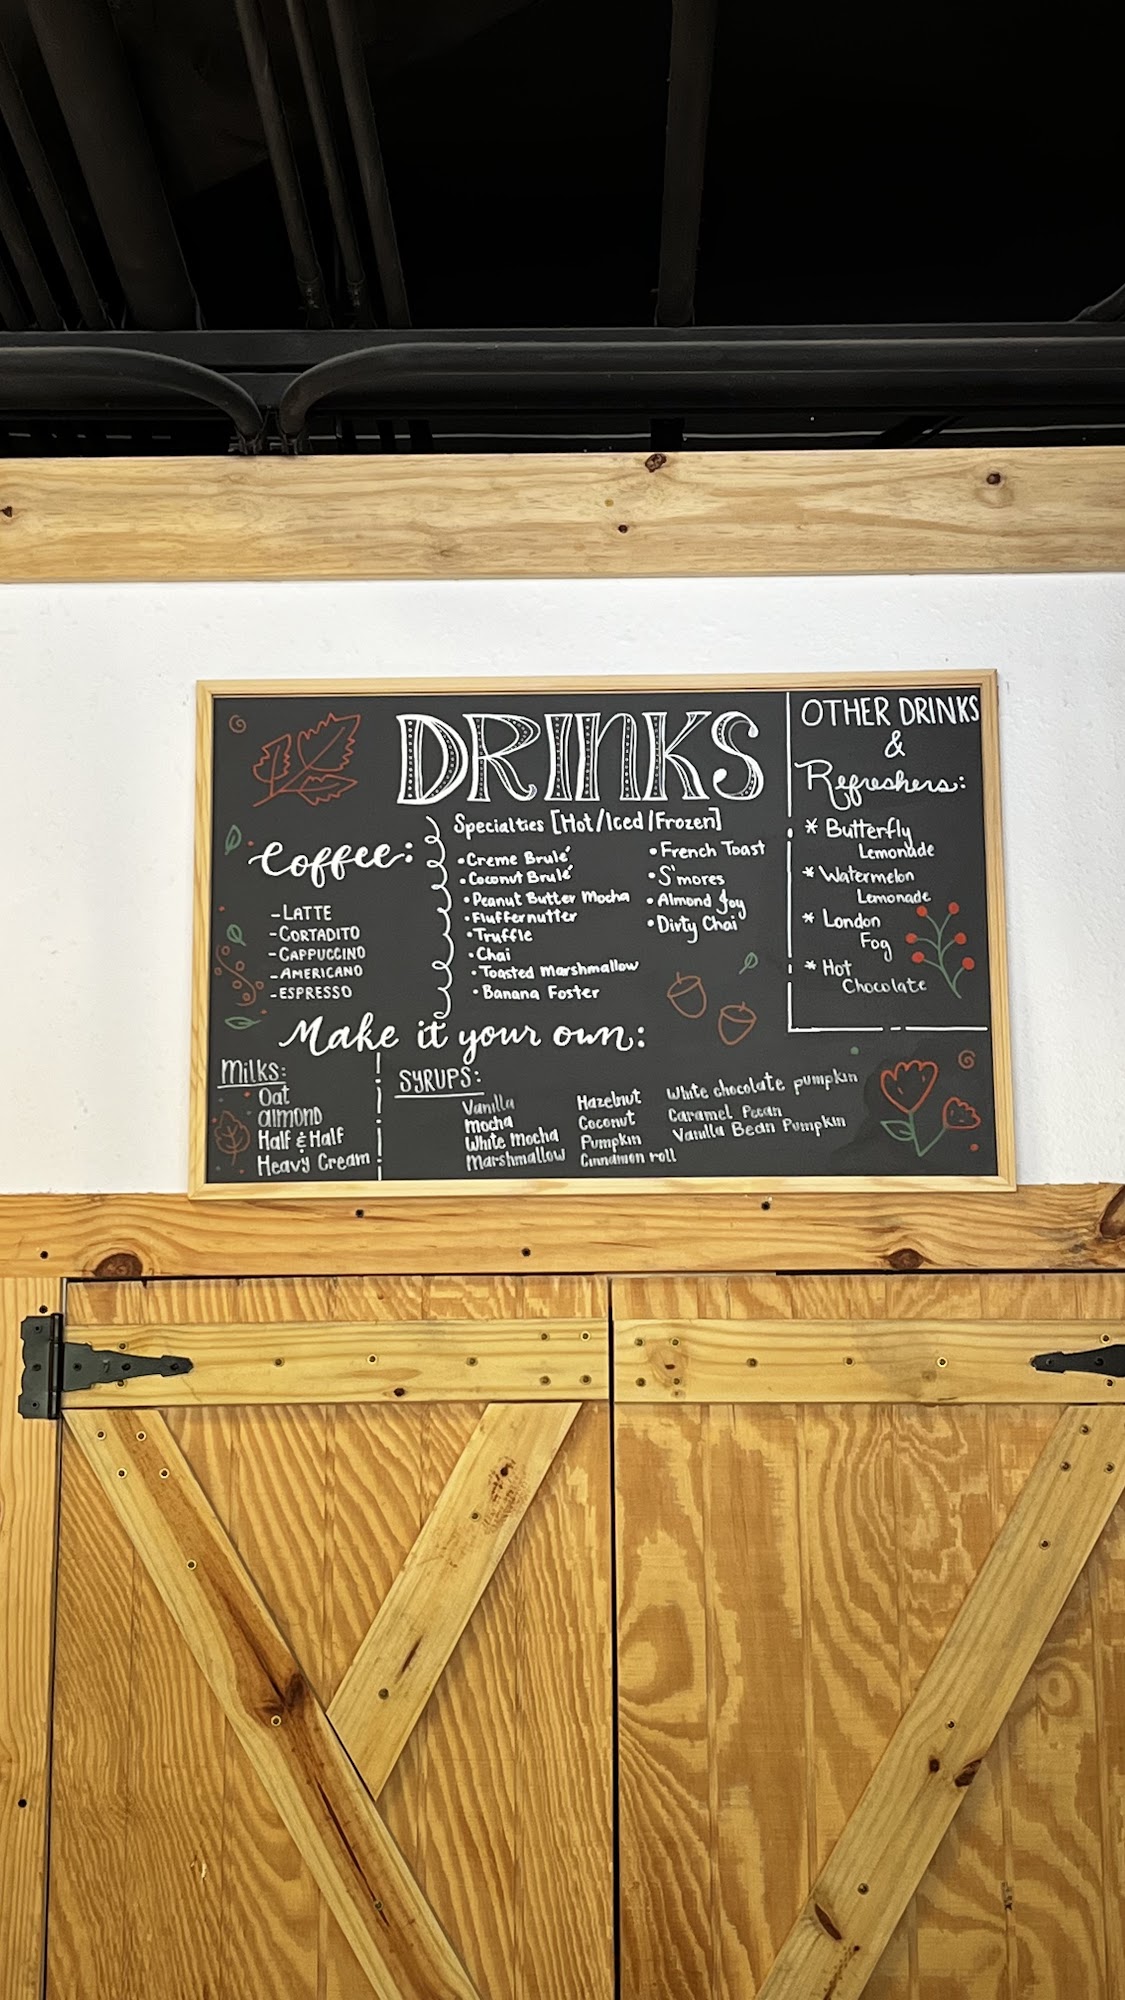 DRINKS
Coffee:
-LATTE
-CORTADITO
-CAPPUCCINO
-AMERICANO
-ESPRESSO
Specialties [Hot/Iced/Frozen]
•Creme Brulé
•Coconut Brulé
•Peanut Butter Mocha
•Fluffernutter
•Truffle
•Chai
•Toasted Marshmallow
•Banana Foster
•French Toast
•S'mores
•Almond Joy
•Dirty Chai
OTHER DRINKS
&
Refreshers:
* Butterfly
Lemonade
* Watermelon
Lemonade
* London
Fog
* Hot
Chocolate
Make it your own:
Milks:
Oat
almond
Half & Half
Heavy Cream
SYRUPS:
Vanilla
mocha
White Mocha
Marshmallow
Hazelnut
Coconut
Pumpkin
Cinnamon roll
White chocolate pumpkin
Caramel Pecan
Vanilla Bean Pumpkin